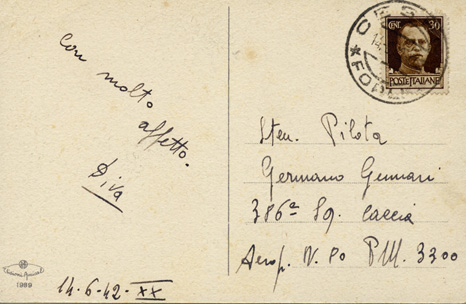 Con molto
affetto.
Diva
14.6.42-XX
1989
CENT. 30
POSTE ITALIANE
Sten. Pilota
Germano Gennari
386ª Sq. Caccia
Aerop. N. 80 PM. 3300